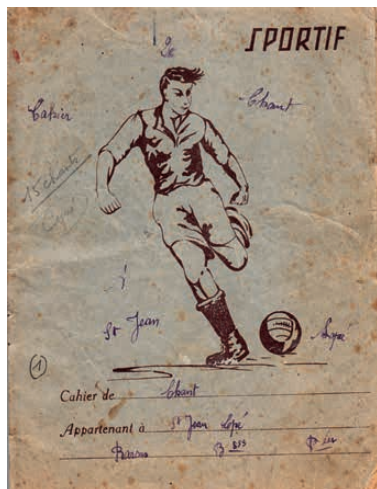 SPORTIF
de
Cahier Chant
15 chants
Lopé
à
St Jean Lopé
1
Cahier de Chant
Appartenant à St Jean Lopé